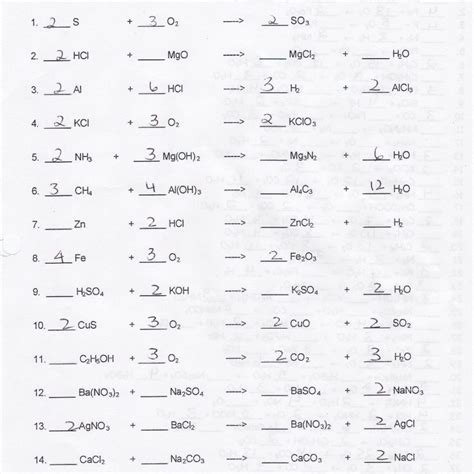 1. 2 S + 3 O₂ ----> 2 SO₃
2. 2 HCl + ___ MgO ----> ___ MgCl₂ + ___ H₂O
3. 2 Al + 6 HCl ----> 3 H₂ + 2 AlCl₃
4. 2 KCl + 3 O₂ ----> 2 KClO₃
5. 2 NH₃ + 3 Mg(OH)₂ ----> ___ Mg₃N₂ + 6 H₂O
6. 3 CH₄ + 4 Al(OH)₃ ----> ___ Al₄C₃ + 12 H₂O
7. ___ Zn + 2 HCl ----> ___ ZnCl₂ + ___ H₂
8. 4 Fe + 3 O₂ ----> 2 Fe₂O₃
9. ___ H₂SO₄ + 2 KOH ----> ___ K₂SO₄ + 2 H₂O
10. 2 CuS + 3 O₂ ----> 2 CuO + 2 SO₂
11. ___ C₂H₅OH + 3 O₂ ----> 2 CO₂ + 3 H₂O
12. ___ Ba(NO₃)₂ + ___ Na₂SO₄ ----> ___ BaSO₄ + 2 NaNO₃
13. 2 AgNO₃ + ___ BaCl₂ ----> ___ Ba(NO₃)₂ + 2 AgCl
14. ___ CaCl₂ + ___ Na₂CO₃ ----> ___ CaCO₃ + 2 NaCl